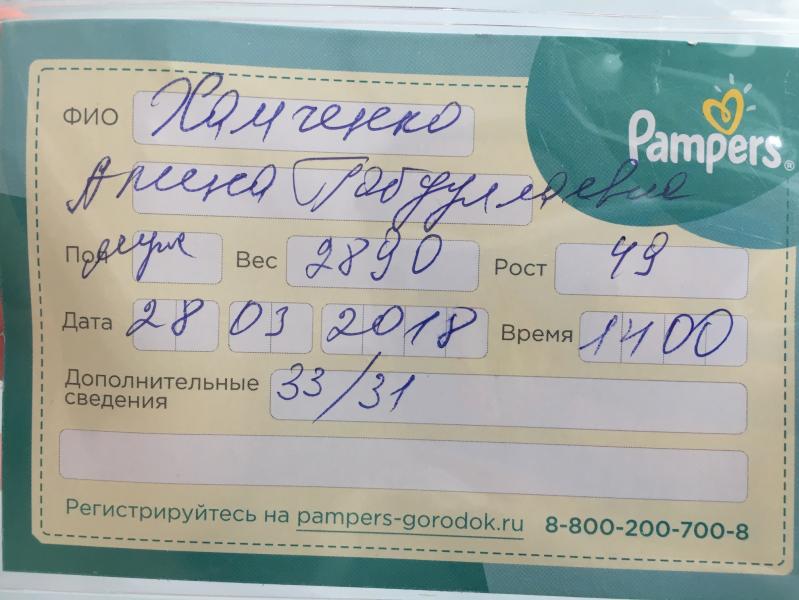 Pampers®
ФИО Хамченко
Габдуллаевна
Пол муж Вес 2890 Рост 49
Дата 28 03 2018 Время 14 00
Дополнительные
сведения 33/31
Регистрируйтесь на pampers-gorodok.ru 8-800-200-700-8